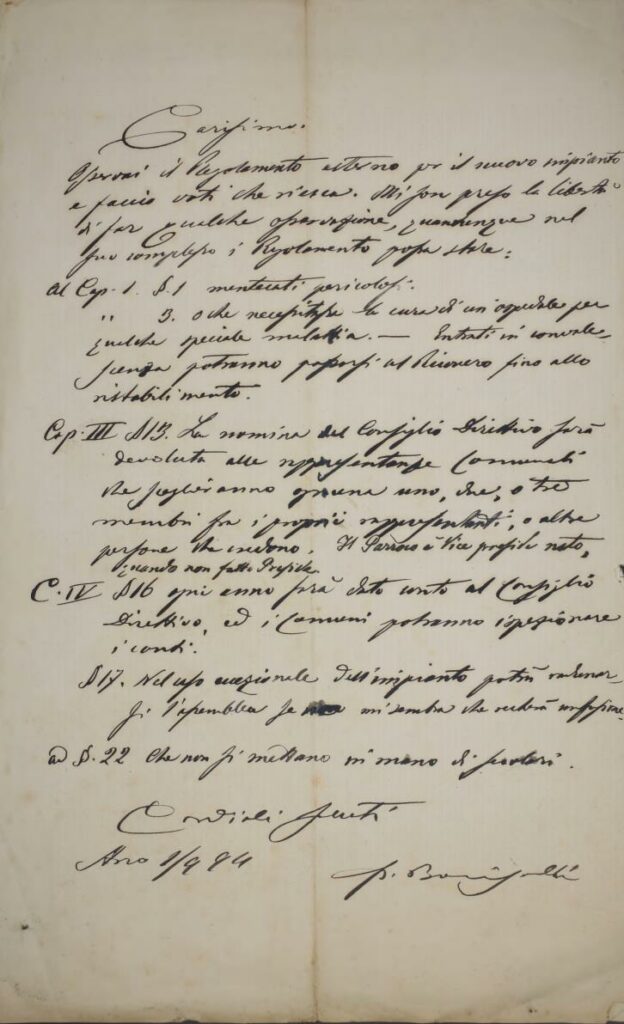 Carissimo.
Osservai il Regolamento esterno per il nuovo impianto
e faccio voti che riesca. Mi son preso la libertà
di far qualche osservazione, quantunque nel
suo complesso il Regolamento possa stare:
Al Cap. 1. §. 1 mentecati pericolosi.
" 3. o che necessitasse la cura di un ospedale per
qualche speciale malattia. — Entrati in convale-
scenza potranno passarsi al Ricovero fino allo
ristabilimento.
Cap. III §13. La nomina del Consiglio Direttivo sarà
devoluta alle rappresentanze Comunali
che sceglieranno ognuna uno, due, o tre
membri fra i proprii rappresentanti, o altre
persone che credono. Il Parroco è Vice preside nato,
quando non fatto Preside.
C. IV §16 ogni anno sarà dato conto al Consiglio
Direttivo, ed i Comuni potranno ispezionare
i conti.
§17. Nel caso eccezionale dell'impianto potrà
l'assemblea se mi sembra che
ad §. 22 Che non si mettano in mano di secolari.
Cordiali saluti
Arco 1/9 84